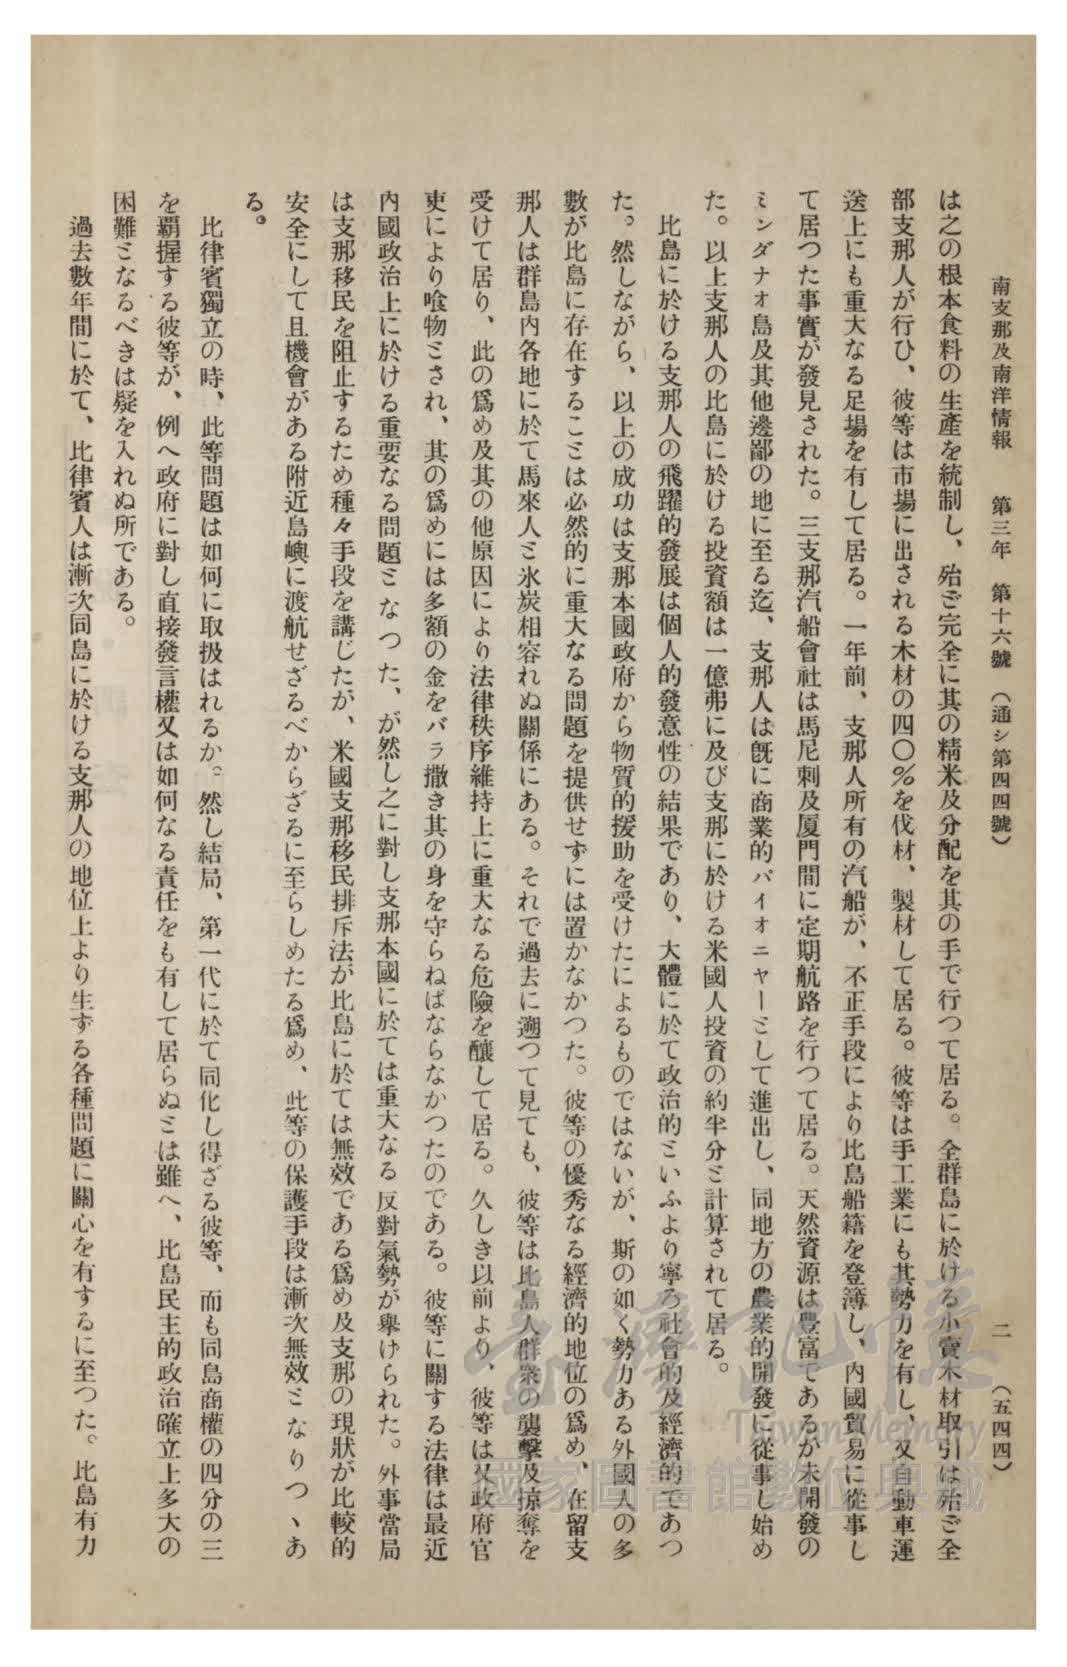 南支那及南洋情報　第三年　第十六號　（通シ第四四號）　二　（五四四）
は之の根本食料の生產を統制し、殆ど完全に其の精米及分配を其の手で行つて居る。全群島に於ける小賣木材取引は殆ど全
部支那人が行ひ、彼等は市場に出される木材の四〇%を伐材、製材して居る。彼等は手工業にも其勢力を有し、又自動車運
送上にも重大なる足場を有して居る。一年前、支那人所有の汽船が、不正手段により比島船籍を登簿し、內國貿易に從事し
て居つた事實が發見された。三支那汽船會社は馬尼剌及厦門間に定期航路を行つて居る。天然資源は豊富であるが未開發の
ミンダナオ島及其他邊鄙の地に至る迄、支那人は旣に商業的パイオニヤーとして進出し、同地方の農業的開發に從事し始め
た。以上支那人の比島に於ける投資額は一億弗に及び支那に於ける米國人投資の約半分と計算されて居る。
比島に於ける支那人の飛躍的發展は個人的發意性の結果であり、大體に於て政治的といふより寧ろ社會的及經濟的であつ
た。然しながら、以上の成功は支那本國政府から物質的援助を受けたによるものではないが、斯の如く勢力ある外國人の多
數が比島に存在することは必然的に重大なる問題を提供せずには置かなかつた。彼等の優秀なる經濟的地位の爲め、在留支
那人は群島內各地に於て馬來人と氷炭相容れぬ關係にある。それで過去に遡つて見ても、彼等は比島人群衆の襲擊及掠奪を
受けて居り、此の爲め及其の他原因により法律秩序維持上に重大なる危險を釀して居る。久しき以前より、彼等は又政府官
吏により喰物とされ、其の爲めには多額の金をバラ撒き其の身を守らねばならなかつたのである。彼等に關する法律は最近
內國政治上に於ける重要なる問題となつた、が然し之に對し支那本國に於ては重大なる反對氣勢が擧げられた。外事當局
は支那移民を阻止するため種々手段を講じたが、米國支那移民排斥法が比島に於ては無效である爲め及支那の現狀が比較的
安全にして且機會がある附近島嶼に渡航せざるべからざるに至らしめたる爲め、此等の保護手段は漸次無效となりつゝあ
る。
比律賓獨立の時、此等問題は如何に取扱はれるか。然し結局、第一代に於て同化し得ざる彼等、而も同島商權の四分の三
を覇握する彼等が、例へ政府に對し直接發言權又は如何なる責任をも有して居らぬとは雖へ、比島民主的政治確立上多大の
困難となるべきは疑を入れぬ所である。
過去數年間に於て、比律賓人は漸次同島に於ける支那人の地位上より生ずる各種問題に關心を有するに至つた。比島有力
臺灣記憶
Taiwan Memory
國家圖書館數位典藏